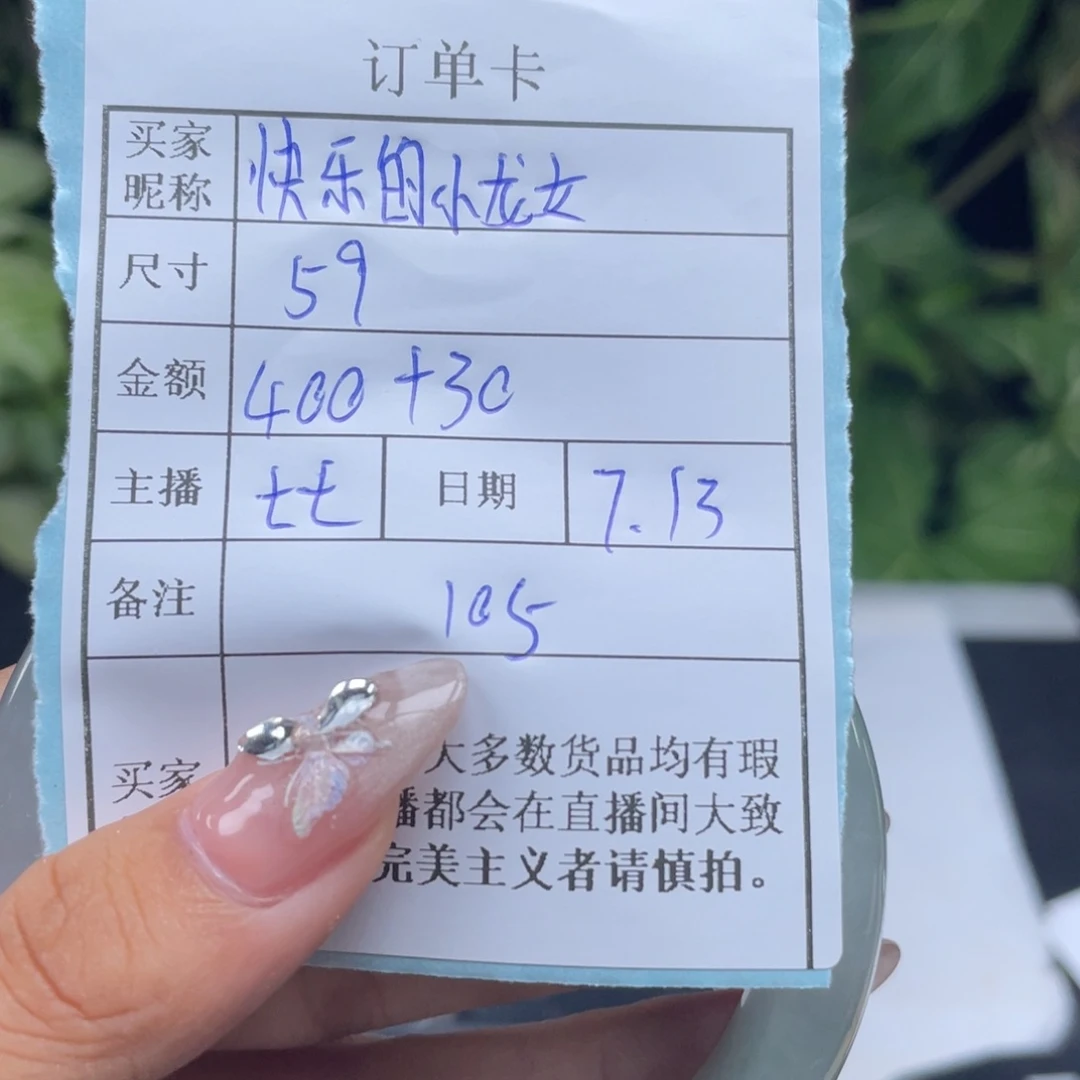 订单卡
买家昵称 快乐的小龙女
尺寸 59
金额 400+30
主播 七七 日期 7.13
备注 105
买家 大多数货品均有瑕
播都会在直播间大致
完美主义者请慎拍。